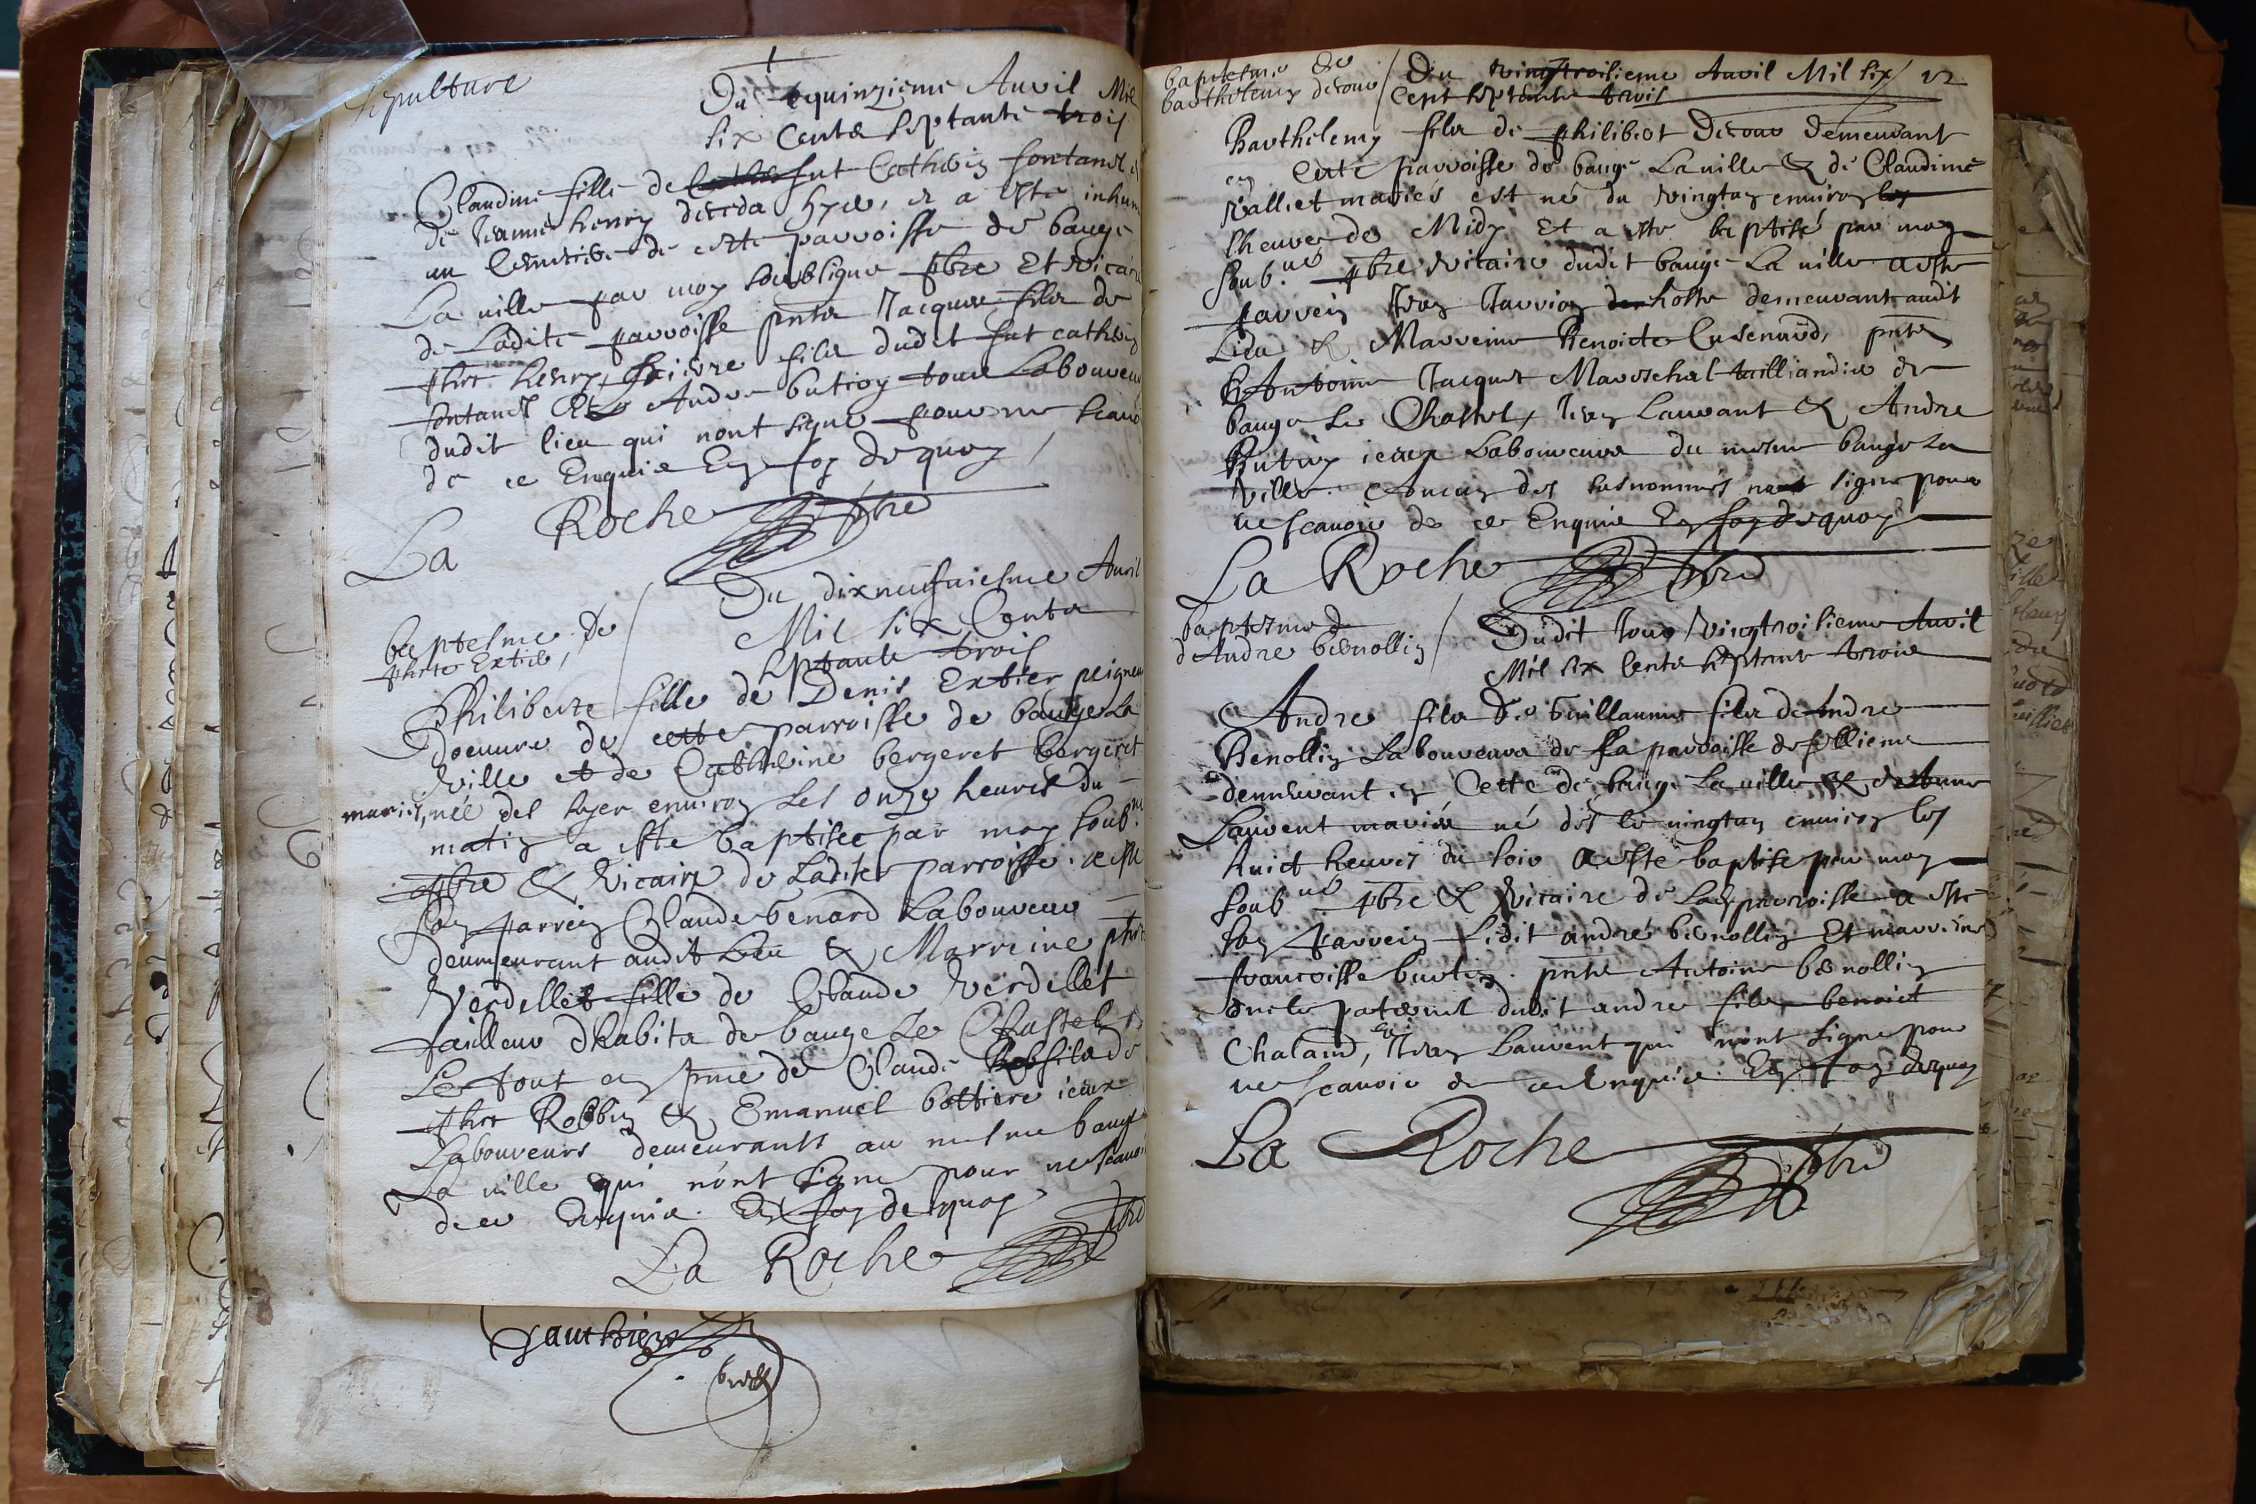 sepulture
Du quinzieme Avril Mil
six Cents septante trois
Claudine fille de fut Cathrin fontanel
de Jeanne henry deceda hyer, et a esté inhum
au Cemetiere de cette parroisse de bauge
La ville par moy soubsigne pbre Et vicaire
de Ladite parroisse pnts Jacques fils de
phts henry, pierre fils dudit fut cathrin
fontanel Et Andre butin tous Laboureurs
dudit lieu qui nont signe pour ne scavoir
de ce Enquis En foy de quoy
La Roche pbre
baptesme de
phte Extier,
Du dixneufviesme Avril
Mil six Cents
septante trois
Philiberte fille de Denis Extier peigneur
doeuvre de cette parroisse de bauge La
Ville et de Catherine bergeret bergeret
mariés, née des hyer environ les onze heures du
matin a esté baptisee par moy soub.né
pbre & Vicaire de Ladite parroisse. a esté
son parrein Claude benard Laboureur
demeurant audit Lieu & Marreine phte
Verdellet fille de Claude Verdellet
tailleur dhabits de bauge Le Chastel,
Le tout en pnce de Claude fils de
phts Robbin & Emanuel bottiere iceux
Laboureurs demeurants au mesme bauge
La ville qui n'ont signe pour ne scavoir
de ce Enquis. En foy de quoy
La Roche pbre
Gauthier
baptesme de
barthelemy decour
Du vingttroisieme Avril Mil six
Cent septante trois
12
Barthelemy fils de philibert Decour demeurant
en Cette parroisse de bauge La ville & de Claudine
mariés est né du vingtun environ les
lheures de Midy Et a esté baptisé par moy
soub.né pbre Vicaire dudit bauge La ville a esté
parrein Jean hoste demeurant audit
Lieu & Marreine Benoicte Cusenard, pnts
Antoine Jacquet Mareschal tailliandier de
bauge Le Chastel, Jean Laurant & Andre
Butin iceux Laboureurs du mesme bauge La
Ville. Aucun des susnommés n'ont signe pour
ne scavoir de ce Enquis En foy de quoy
La Roche pbre
baptesme de
d'Andre benollin
Dudit Jour vingttroisieme Avril
Mil six Cents septante trois
Andre fils de Guillaume fils de Andre
Benollin Laboureurs de la parroisse de
demeurant en Cette de bauge La ville & de Anne
Laurent mariés né dès le vingtun environ les
huict heures du soir a esté baptisé par moy
soub.né pbre & Vicaire de Lad parroisse a esté
son parrein Ledit andré benollin Et marreine
francoise burtin. pnts Antoine benollin
oncle paternel dudit andre fils, benoict
Chaland, & Jean Laurent qui n'ont signe pour
ne scavoir de ce Enquis. En foy de quoy
La Roche pbre